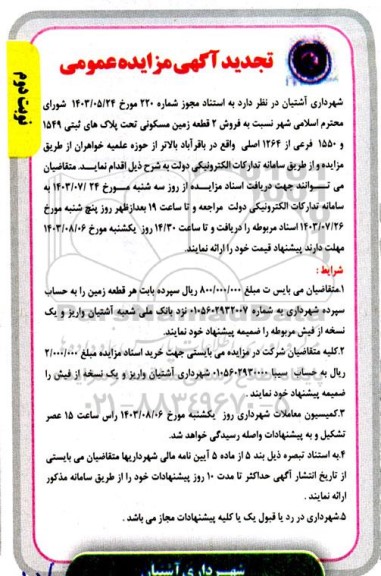 تجدید آگهی مزایده عمومی
نوبت دوم
شهرداری آشتیان در نظر دارد به استناد مجوز شماره ۲۲۰ مورخ ۱۴۰۳/۰۵/۲۴ شورای
محترم اسلامی شهر نسبت به فروش ۲ قطعه زمین مسکونی تحت پلاک های ثبتی ۱۵۴۹
و ۱۵۵۰ فرعی از ۱۲۶۴ اصلی واقع در باقرآباد بالاتر از حوزه علمیه خواهران از طریق
مزایده و از طریق سامانه تدارکات الکترونیکی دولت به شرح ذیل اقدام نمایند. متقاضیان
می توانند جهت دریافت اسناد مزایده از روز سه شنبه مورخ ۱۴۰۳/۰۷/۲۴ به
سامانه تدارکات الکترونیکی دولت مراجعه و تا ساعت ۱۹ بعدازظهر روز پنج شنبه مورخ
۱۴۰۳/۰۷/۲۶ اسناد مربوطه را دریافت و تا ساعت ۱۴/۳۰ روز یکشنبه مورخ ۱۴۰۳/۰۸/۰۶
مهلت دارند پیشنهاد قیمت خود را ارائه نمایند.
شرایط :
۱.متقاضیان می بایس ت مبلغ ۸۰۰/۰۰۰/۰۰۰ ریال سپرده بابت هر قطعه زمین را به حساب
سپرده شهرداری به شماره ۰۱۰۵۶۰۲۹۳۲۰۰۷ نزد بانک ملی شعبه آشتیان واریز و یک
نسخه از فیش مربوطه را ضمیمه پیشنهاد خود نمایند.
۲.کلیه متقاضیان شرکت در مزایده می بایستی جهت خرید اسناد مزایده مبلغ ۲/۰۰۰/۰۰۰
ریال به حساب سیبا ۰۱۰۵۶۰۲۹۳۰۰۰ شهرداری آشتیان واریز و یک نسخه از فیش را
ضمیمه پیشنهاد خود نمایند
۳.کمیسیون معاملات شهرداری روز یکشنبه مورخ ۱۴۰۳/۰۸/۰۶ راس ساعت ۱۵ عصر
تشکیل و به پیشنهادات واصله رسیدگی خواهد شد.
۴.به استناد تبصره ذیل بند ۵ از ماده ۵ آیین نامه مالی شهرداریها متقاضیان می بایستی
از تاریخ انتشار آگهی حداکثر تا مدت ۱۰ روز پیشنهادات خود را از طریق سامانه مذکور
ارائه نمایند .
۵.شهرداری در رد یا قبول یک یا کلیه پیشنهادات مجاز می باشد .
شهرداری آشتیان
۰۲۱-۸۸۳۴۹۶۷۰-۵